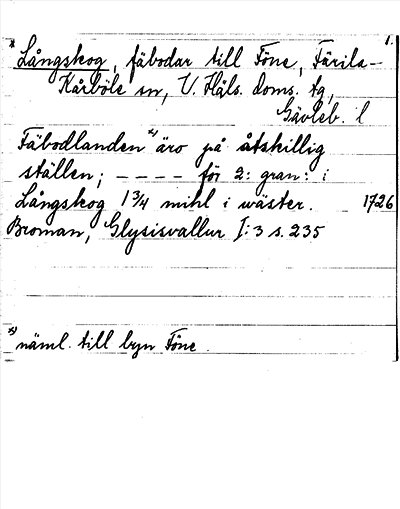 1.
* Långskog, fäbodar till Föne, Färila-
Kårböle sn, V. Häls. doms. tg,
Gävleb. l
Fäbodlanden *) äro på åtskillig
ställen; ---- för 2: gran: i
Långskog 1 3/4 mihl i wäster. 1726
Broman, Glysisvallur I: 3 s. 235
*) näml. till byn Föne.